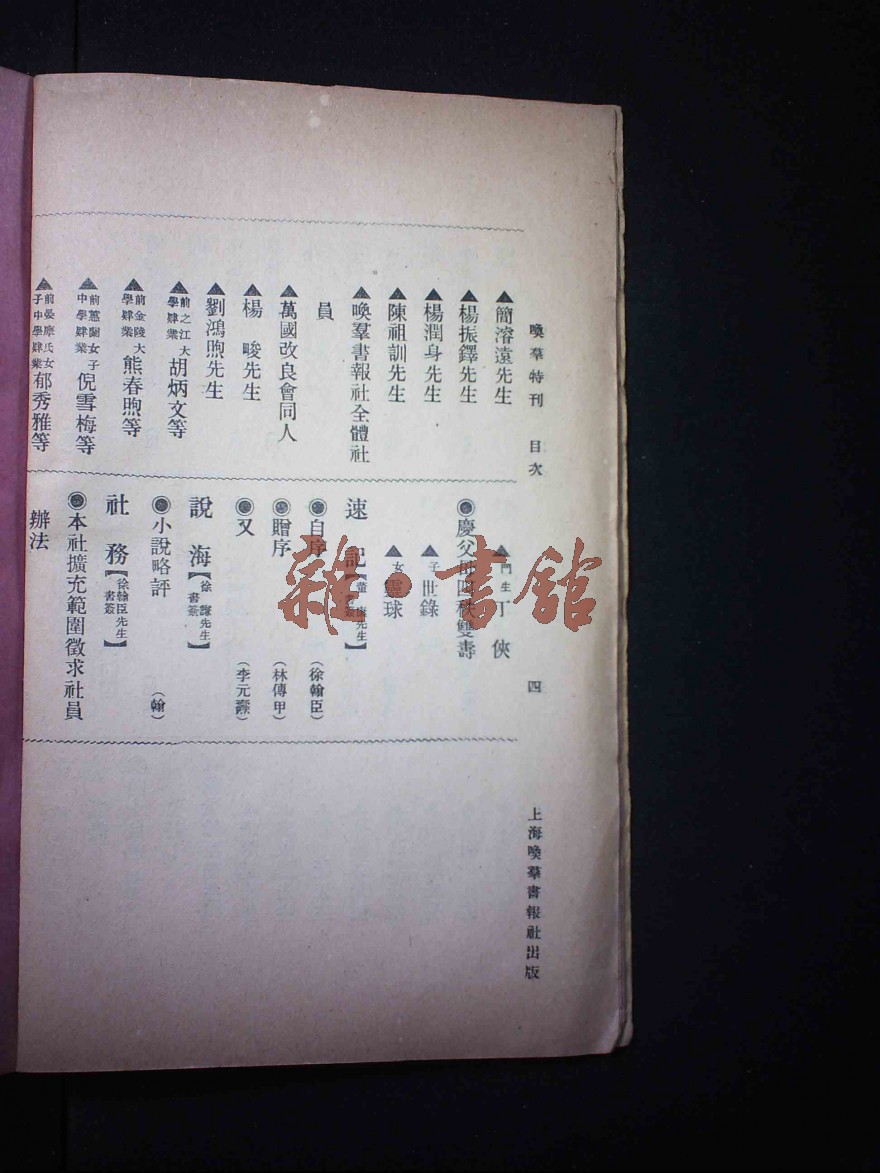 喚羣特刊 目次 四 上海喚羣書報社出版
▲簡濬遠先生
▲楊振鐸先生
▲楊潤身先生
▲陳祖訓先生
▲喚羣書報社全體社
員
▲萬國改良會同人
▲楊 畯先生
▲劉鴻煦先生
▲前之江大學肄業胡炳文等
▲前金陵大學肄業熊春煦等
▲前蕙蘭女子中學肄業倪雪梅等
▲前晏摩氏女子中學肄業郁秀雅等
▲門生丁 俠
◉慶父母四秩雙壽
▲子世錄
▲女靈球
速 記【董 先生書簽】
◉自序 (徐翰臣)
◉贈序 (林傳甲)
◉又 (李元鼎)
說 海【徐 謙先生書簽】
◉小說略評 (翰)
社 務【徐翰臣先生書簽】
◉本社擴充範圍徵求社員
辦法
雜·書館